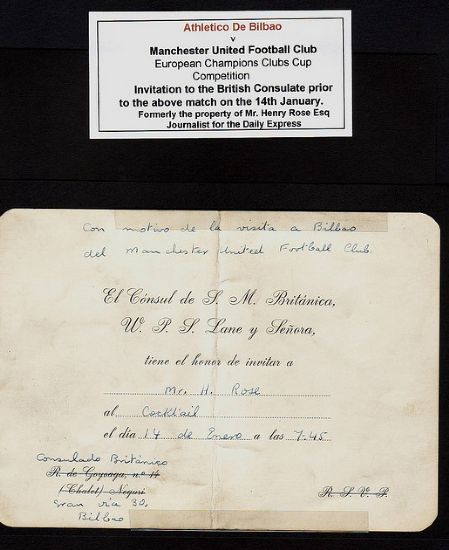 Athletico De Bilbao
v
Manchester United Football Club
European Champions Clubs Cup
Competition
Invitation to the British Consulate prior
to the above match on the 14th January.
Formerly the property of Mr. Henry Rose Esq
Journalist for the Daily Express
Con motivo de la visita a Bilbao
del Manchester United Football Club.
El Cónsul de S. M. Británica,
W. P. S. Lane y Señora,
tiene el honor de invitar a
Mr. H. Rose
al Cocktail
el día 14 de Enero a las 7.45
Consulado Británico
R. de Goyoaga, nº 14
(Chalet) Neguri
Gran vía 30.
Bilbao
R. S. V. P.